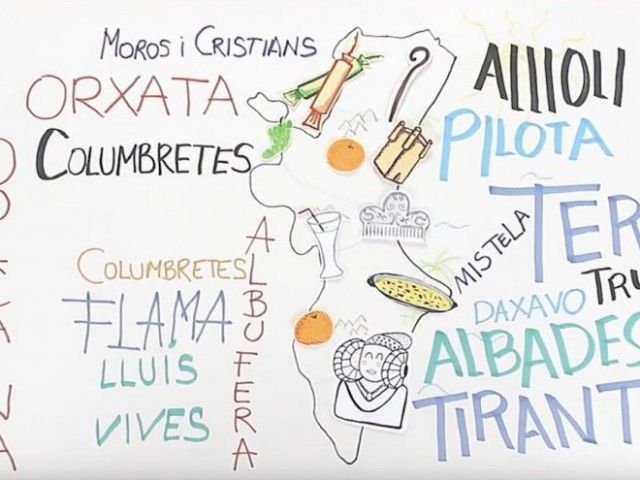 MOROS i CRISTIANS
ORXATA
COLUMBRETES
COLUMBRETES
FLAMA
LLUÍS
VIVES
ALBUFERA
ALLIOLI
PILOTA
TER
MISTELA
TRU
DAXAVO
ALBADES
TIRANT